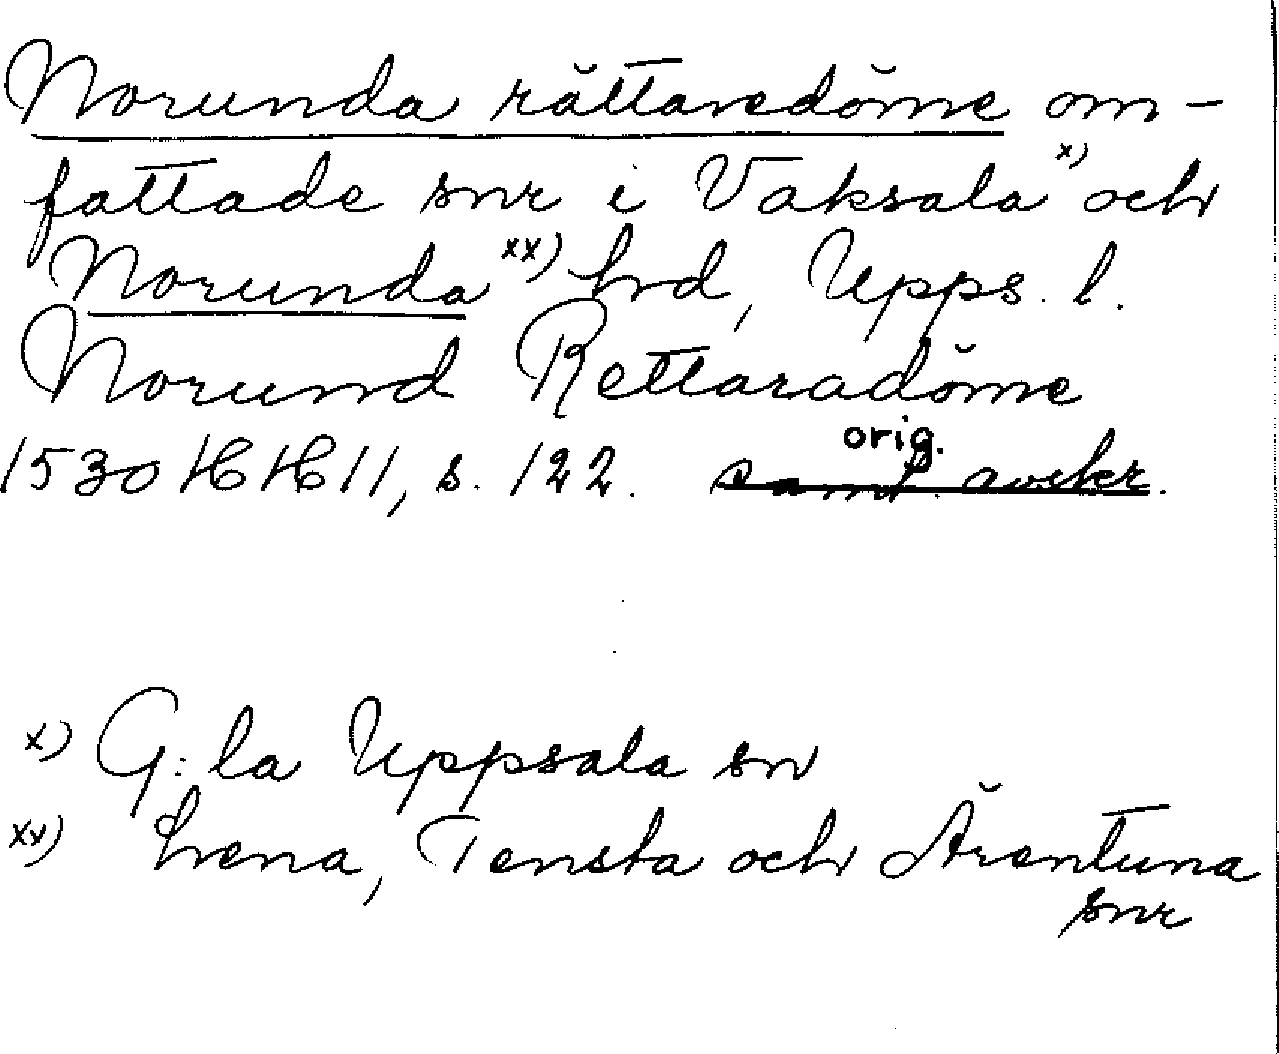 Norunda rättaredöme om-
fattade snr i Vaksala x) och
Norunda xx) hd, Upps. l.
Norund Rettaradöme
orig.
1530 HH 11, s. 122. samt. avskr.
x) G:la Uppsala sn
xx) Lena, Tensta och Ärentuna
snr